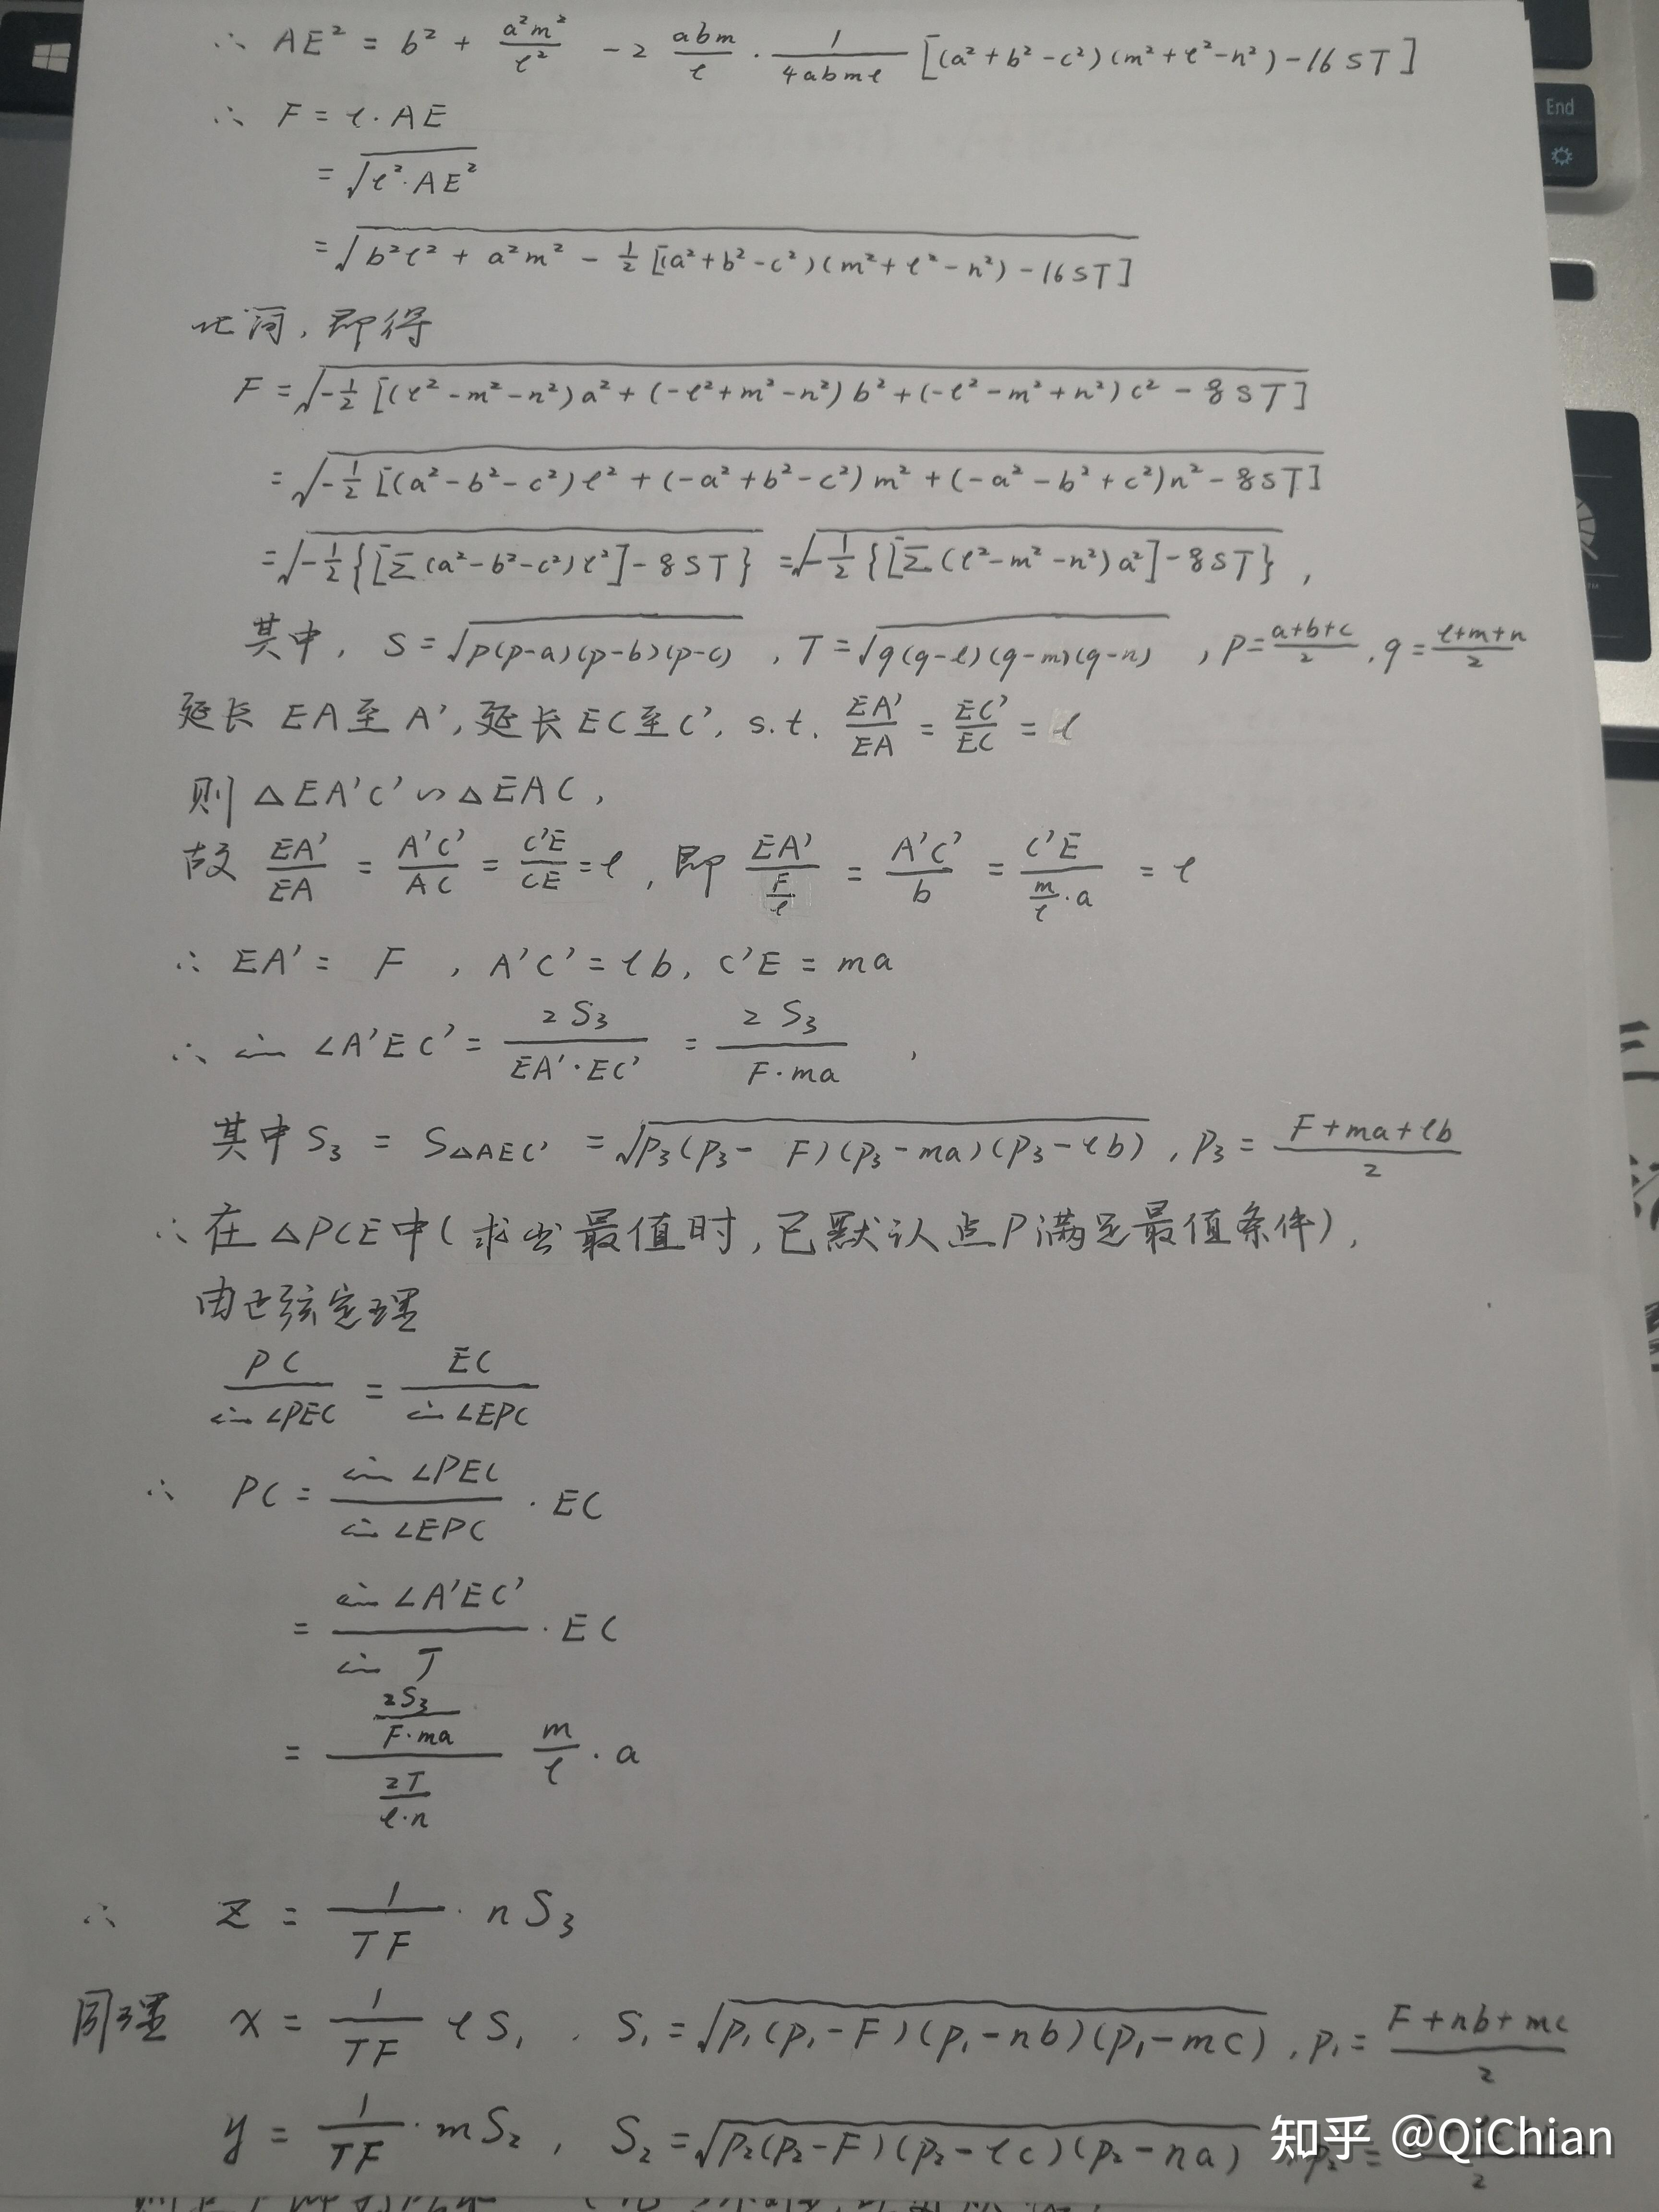 ∴ AE² = b² + a²m²/ℓ² - 2 abm/ℓ · 1/4abmℓ [(a²+b²-c²)(m²+ℓ²-n²)-16ST]
End
∴ F = ℓ·AE
= √(ℓ²·AE²)
= √(b²ℓ² + a²m² - 1/2 [(a²+b²-c²)(m²+ℓ²-n²)-16ST])
化简, 即得
F = √(-1/2 [(ℓ²-m²-n²)a² + (-ℓ²+m²-n²)b² + (-ℓ²-m²+n²)c² - 8ST])
= √(-1/2 [(a²-b²-c²)ℓ² + (-a²+b²-c²)m² + (-a²-b²+c²)n² - 8ST])
= √(-1/2 {[Σ(a²-b²-c²)ℓ²]-8ST}) = √(-1/2 {[Σ(ℓ²-m²-n²)a²]-8ST}) ,
其中, S = √(p(p-a)(p-b)(p-c)) , T = √(q(q-ℓ)(q-m)(q-n)) , p = a+b+c/2 , q = ℓ+m+n/2
延长 EA至 A', 延长 EC至 C', s.t. EA'/EA = EC'/EC = ℓ
则 △EA'C' ∽ △EAC,
故 EA'/EA = A'C'/AC = C'E/CE = ℓ , 即 EA'/(F/ℓ) = A'C'/b = C'E/(m/ℓ · a) = ℓ
∴ EA' = F , A'C' = ℓb, C'E = ma
∴ sin ∠A'EC' = 2S₃/EA'·EC' = 2S₃/F·ma ,
其中 S₃ = S△AEC' = √(p₃(p₃-F)(p₃-ma)(p₃-ℓb)) , p₃ = F+ma+ℓb/2
∴ 在 △PCE中(求出最值时, 已默认点P满足最值条件),
由正弦定理
PC/sin ∠PEC = EC/sin ∠EPC
∴ PC = sin ∠PEC/sin ∠EPC · EC
= sin ∠A'EC'/sin T · EC
= (2S₃/F·ma)/(2T/ℓ·n) m/ℓ · a
∴ z = 1/TF · nS₃
同理 x = 1/TF ℓS₁ , S₁ = √(p₁(p₁-F)(p₁-nb)(p₁-mc)) , p₁ = F+nb+mc/2
y = 1/TF · mS₂ , S₂ = √(p₂(p₂-F)(p₂-ℓc)(p₂-na)) , p₂ = /2
知乎 @QiChian